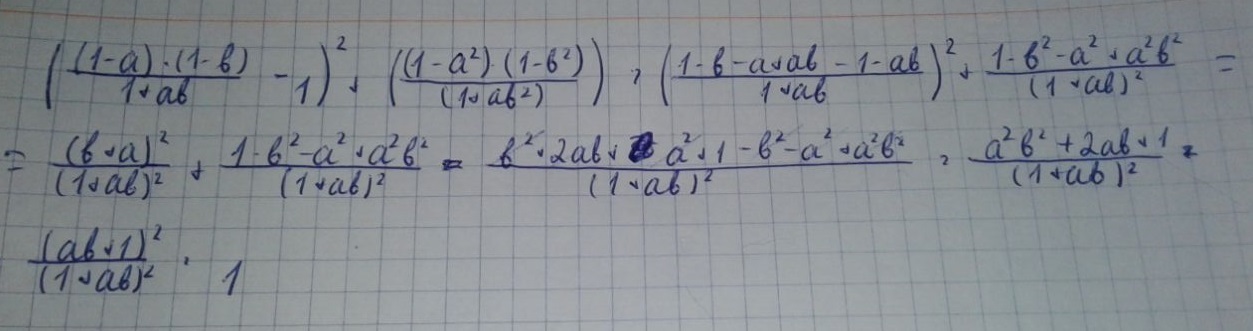 (((1-a)·(1-b))/(1+ab) - 1)² + (((1-a²)·(1-b²))/((1+ab²))) = ((1-b-a+ab-1-ab)/(1+ab))² + (1-b²-a²+a²b²)/((1+ab)²) =
= (b+a)²/(1+ab)² + (1-b²-a²+a²b²)/((1+ab)²) = (b²+2ab+a²+1-b²-a²+a²b²)/((1+ab)²) = (a²b²+2ab+1)/((1+ab)²) =
(ab+1)²/(1+ab)² = 1